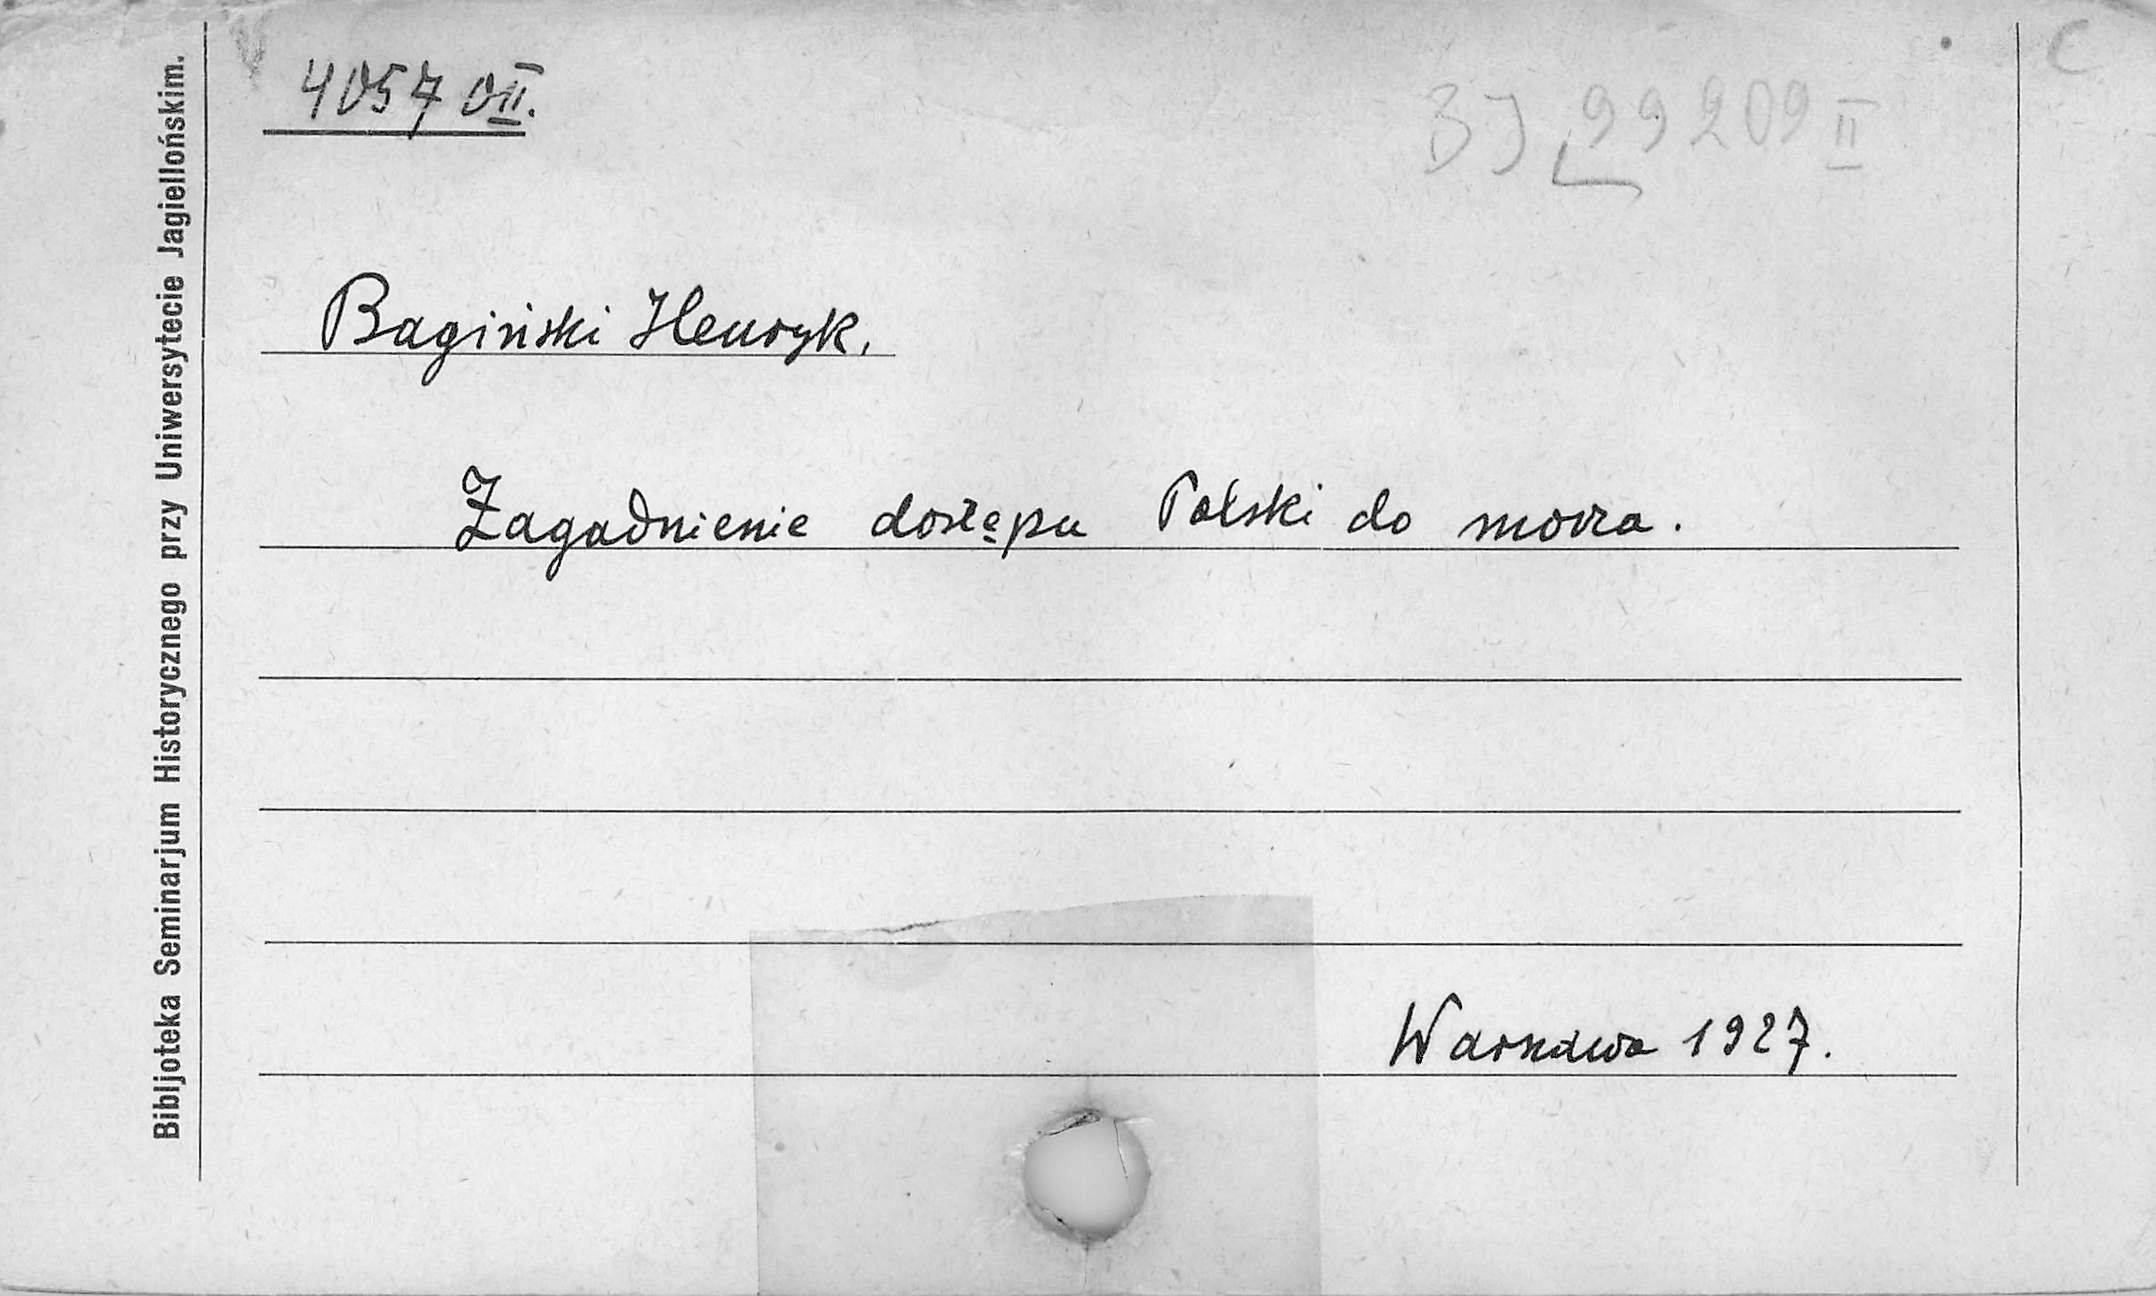 4057 OII.
BJ 99209 II
C
Bagiński Henryk.
Zagadnienie dostępu Polski do morza.
Warszawa 1927.
Bibljoteka Seminarjum Historycznego przy Uniwersytecie Jagiellońskim.